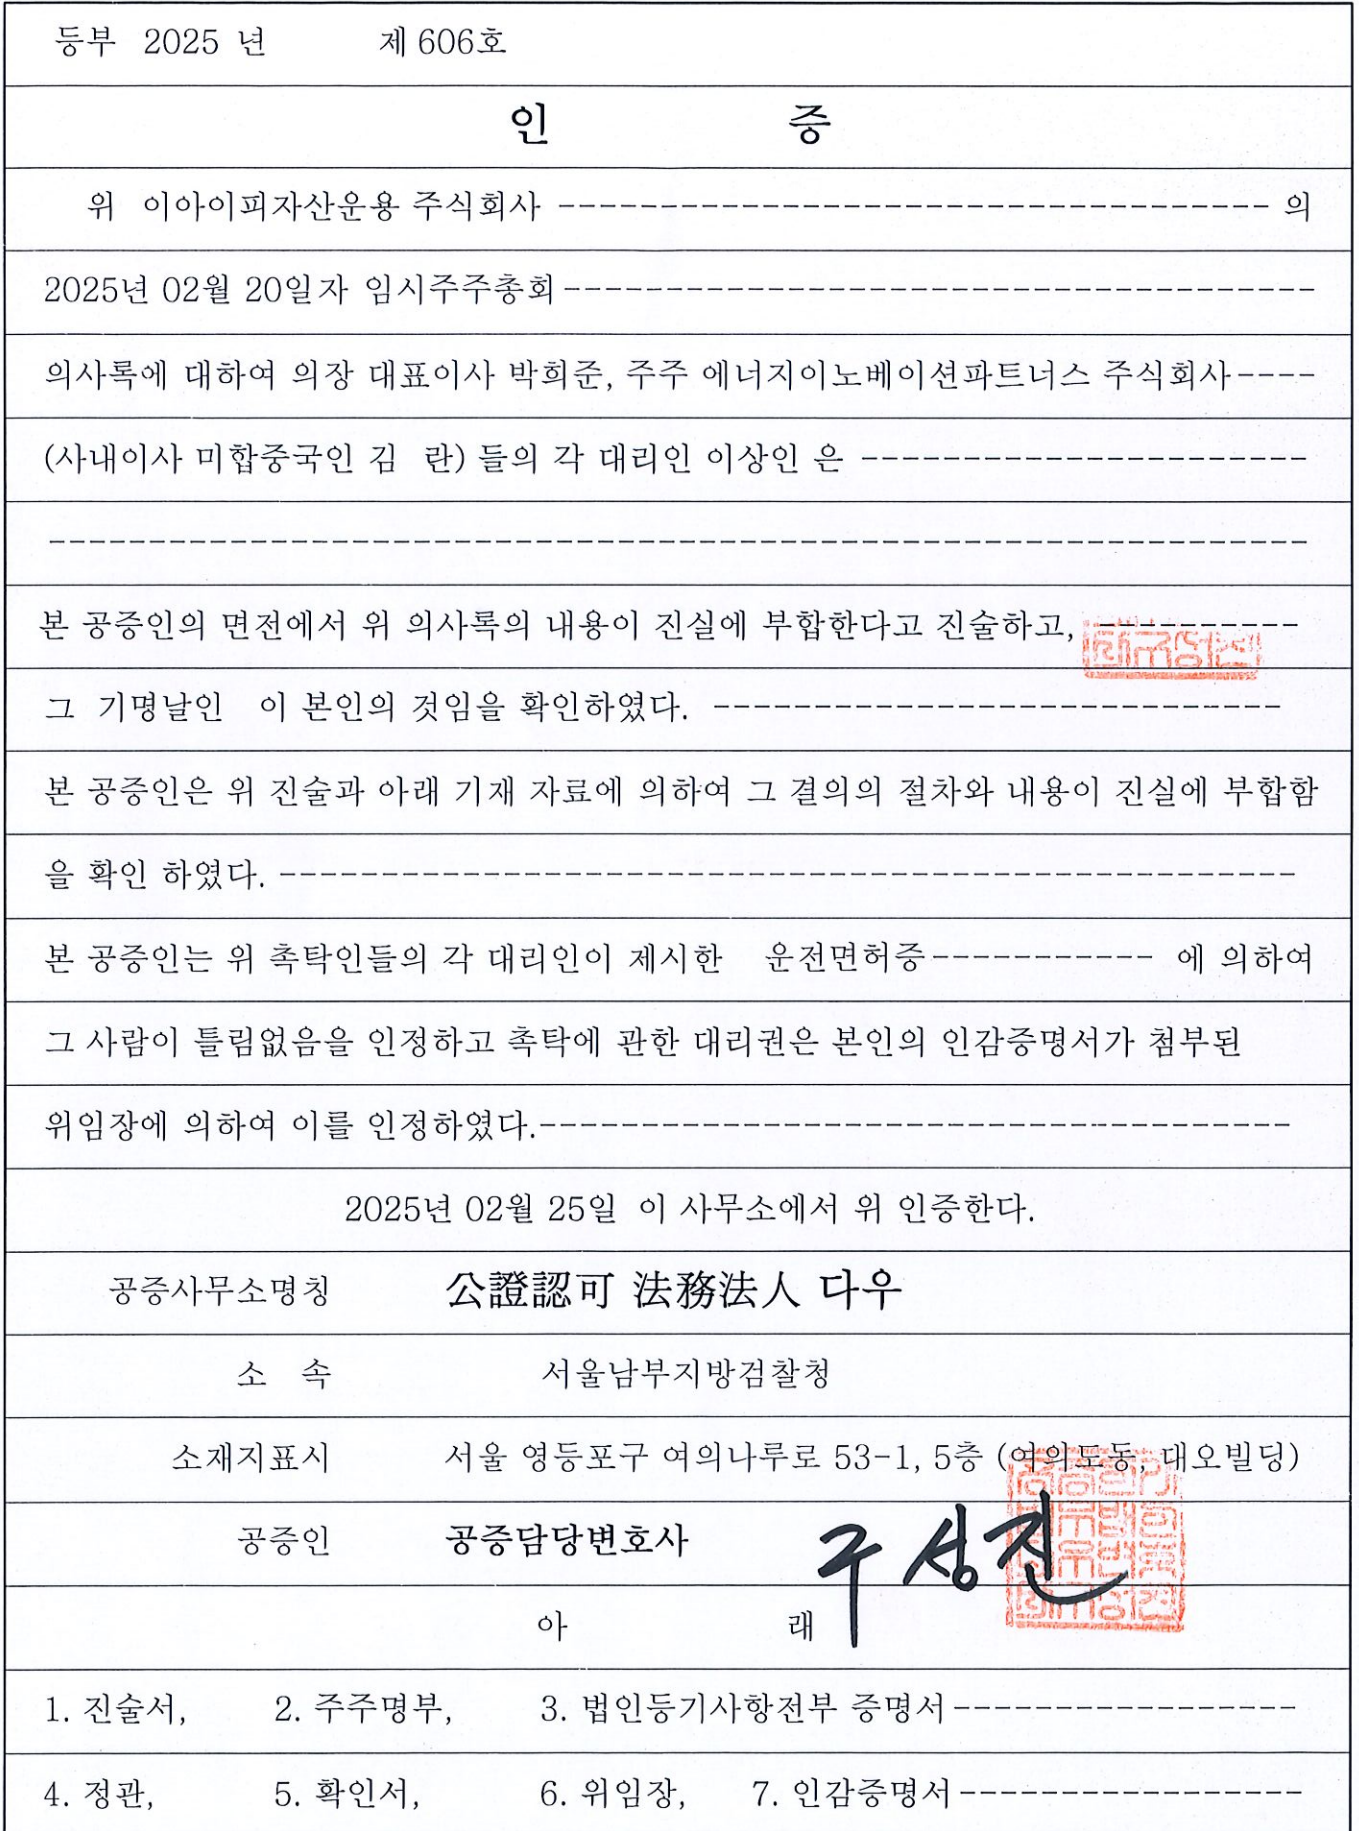 등부 2025 년 제 606호
인 증
위 이아이피자산운용 주식회사 ----------------------------------- 의
2025년 02월 20일자 임시주주총회-------------------------------------
의사록에 대하여 의장 대표이사 박희준, 주주 에너지이노베이션파트너스 주식회사----
(사내이사 미합중국인 김 란) 들의 각 대리인 이상인 은 ----------------------
--------------------------------------------------------------
본 공증인의 면전에서 위 의사록의 내용이 진실에 부합한다고 진술하고, ----------
그 기명날인 이 본인의 것임을 확인하였다. ----------------------------
본 공증인은 위 진술과 아래 기재 자료에 의하여 그 결의의 절차와 내용이 진실에 부합함
을 확인 하였다. --------------------------------------------------
본 공증인는 위 촉탁인들의 각 대리인이 제시한 운전면허증----------- 에 의하여
그 사람이 틀림없음을 인정하고 촉탁에 관한 대리권은 본인의 인감증명서가 첨부된
위임장에 의하여 이를 인정하였다.-------------------------------------
2025년 02월 25일 이 사무소에서 위 인증한다.
공증사무소명칭 公證認可 法務法人 다우
소 속 서울남부지방검찰청
소재지표시 서울 영등포구 여의나루로 53-1, 5층 (여의도동, 대오빌딩)
공증인 공증담당변호사 구성진
아 래
1. 진술서, 2. 주주명부, 3. 법인등기사항전부 증명서-----------------
4. 정관, 5. 확인서, 6. 위임장, 7. 인감증명서-----------------